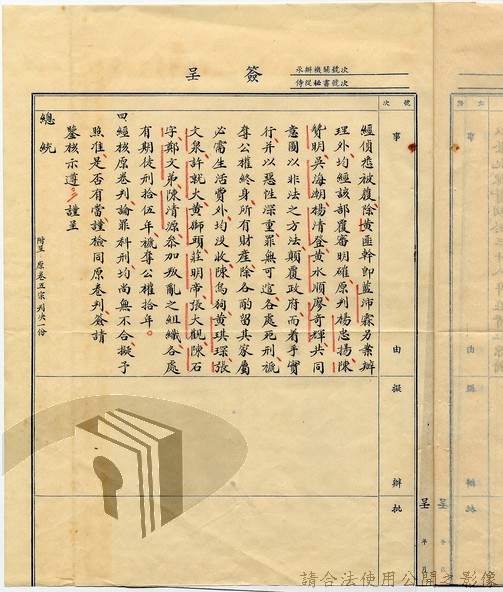 簽呈
承辦機關號次
侍從秘書號次
號次
事由
擬辦
批
經偵悉被覆除黃匪幹即藍沛霖另案辦
理外均經該部覆審明確原判楊忠揚陳
贊明吳海潮楊清登黃水順廖奇輝共同
意圖以非法之方法顛覆政府而着手實
行并以惡性深重罪無可逭各處死刑褫
奪公權終身所有財產除各酌留其家屬
必需生活費外均沒收陳烏狗黃琪琛張
文泉許就火黃獅頭莊明帝張大觀陳石
字鄭文弟陳清源參加叛亂之組織各處
有期徒刑拾伍年褫奪公權拾年。
四經核原卷判論罪科刑均尚無不合擬予
照准是否有當謹檢同原卷判簽請
鑒核示遵 謹呈
總統
附呈 原卷五宗判決一份
呈 年
請合法使用公開之影像